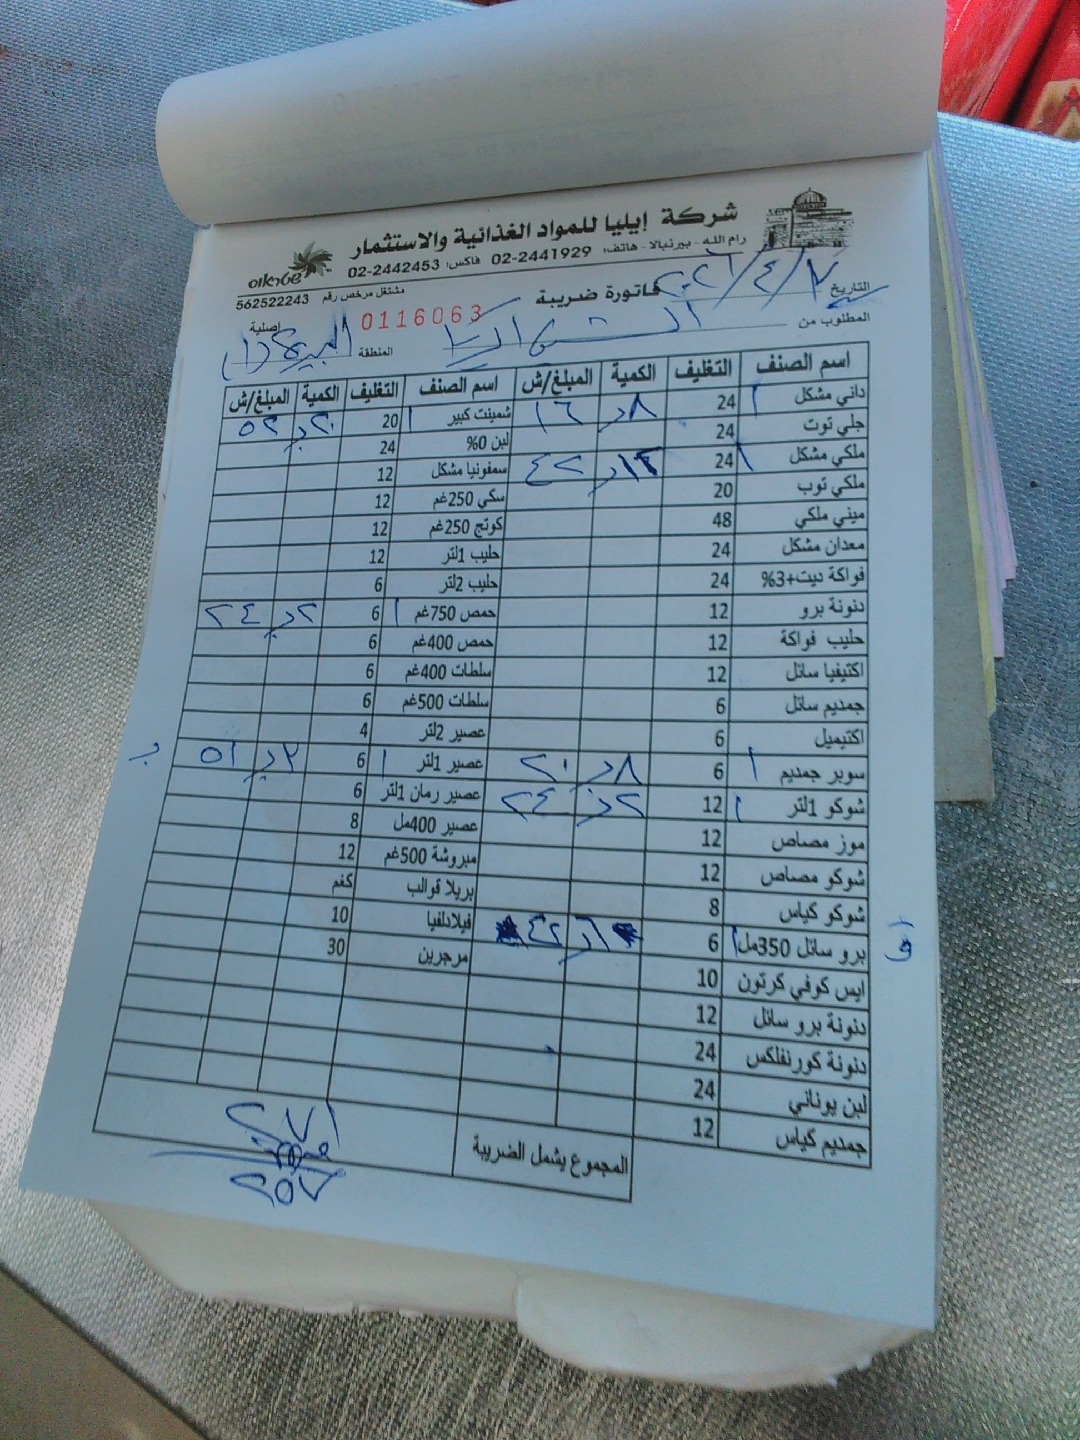 شركة إيليا للمواد الغذائية والاستثمار
رام الله - بيرنبالا - هاتف: 02-2441929 فاكس: 02-2442453
שטראוס
مشتغل مرخص رقم 562522243
التاريخ
فاتورة ضريبة
0116063 أصلية
المطلوب من
المنطقة
اسم الصنف التغليف الكمية المبلغ/ش اسم الصنف التغليف الكمية المبلغ/ش
داني مشكل ١ 24 ٨ر ١٦ شمينت كبير ١ 20
جلي توت 24 لبن 0% 24
ملكي مشكل ١ 24 سمفونيا مشكل 12
ملكي توب 20 سكي 250غم 12
ميني ملكي 48 كوتج 250غم 12
معدان مشكل 24 حليب 1لتر 12
فواكة ديت+3% 24 حليب 2لتر 6
دنونة برو 12 حمص 750غم ١ 6 ٢ر ٢٤
حليب فواكة 12 حمص 400غم 6
اكتيفيا سائل 12 سلطات 400غم 6
جمديم سائل 6 سلطات 500غم 6
اكتيميل 6 عصير 2لتر 4
سوبر جمديم ١ 6 ٨ر ٢٠ عصير 1لتر ١ 6
شوكو 1لتر ١ 12 ٢ر ٢٤ عصير رمان 1لتر 6
موز مصاص 12 عصير 400مل 8
شوكو مصاص 12 مبروشة 500غم 12
شوكو كياس 8 بريلا قوالب كغم
برو سائل 350مل ١ 6 فيلادلفيا 10
ايس كوفي كرتون 10 مرجرين 30
دنونة برو سائل 12
دنونة كورنفلكس 24
لبن يوناني 24
جمديم كياس 12
المجموع يشمل الضريبة
٢٧١